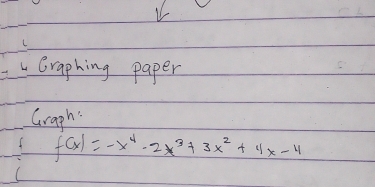 Graphing paper
Graph:
f(x) = -x⁴ - 2x³ + 3x² + 4x - 4